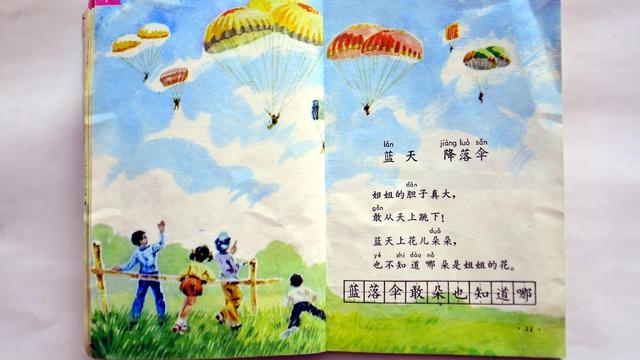 lán jiàng luò sǎn
蓝天 降落伞
dǎn
姐姐的胆子真大，
gǎn
敢从天上跳下！
duǒ
蓝天上花儿朵朵，
yě zhī dào nǎ
也不知道哪朵是姐姐的花。
蓝落伞敢朵也知道哪